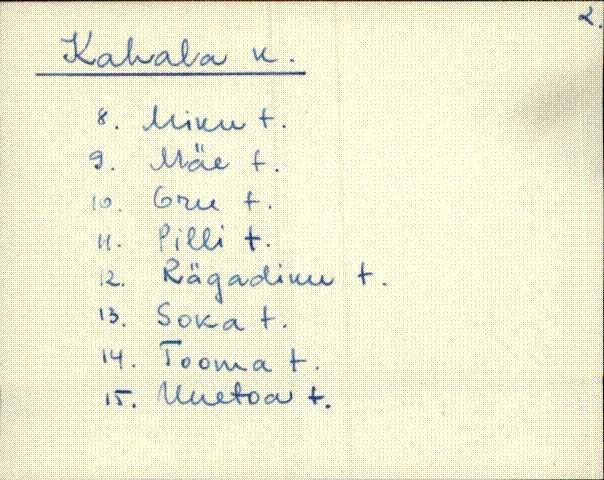 2.
Kahala k.
8. Miku t.
9. Mäe t.
10. Oru t.
11. Pilli t.
12. Rägadiku t.
13. Soka t.
14. Tooma t.
15. Uuetoa t.